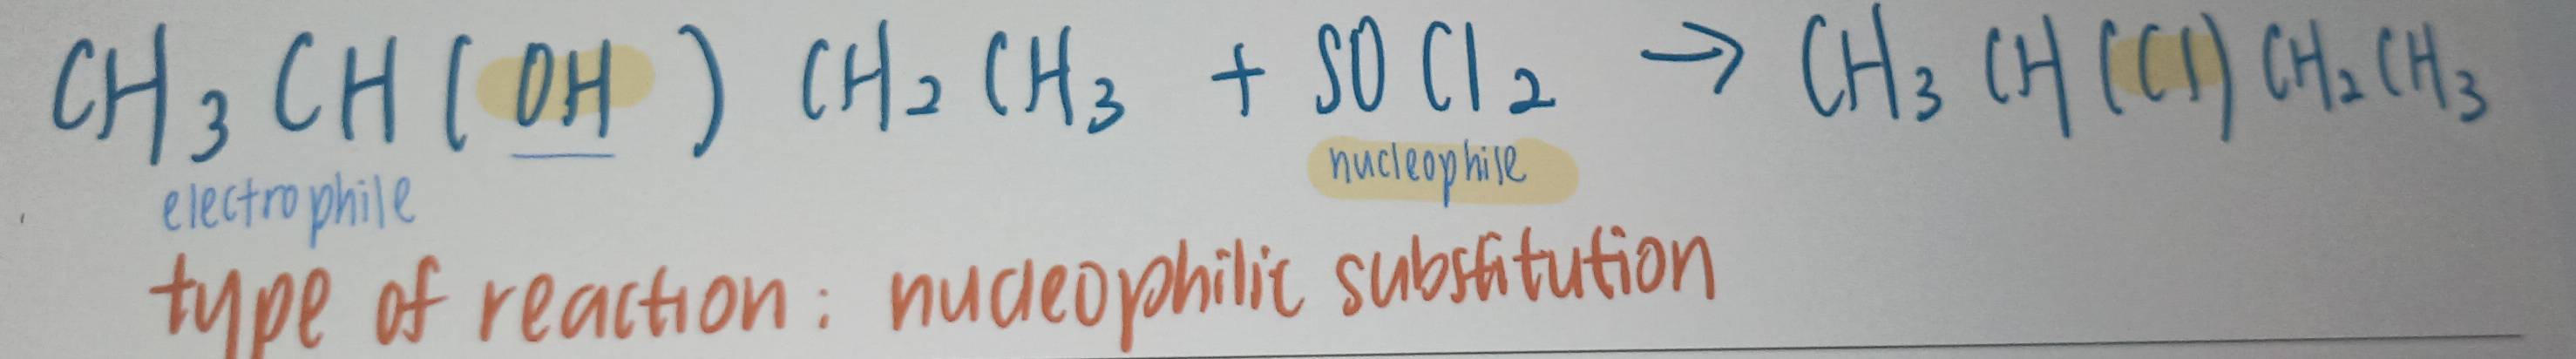 CH3CH(OH)CH2CH3 + SOCl2 → CH3CH(Cl)CH2CH3
electrophile nucleophile
type of reaction: nucleophilic substitution